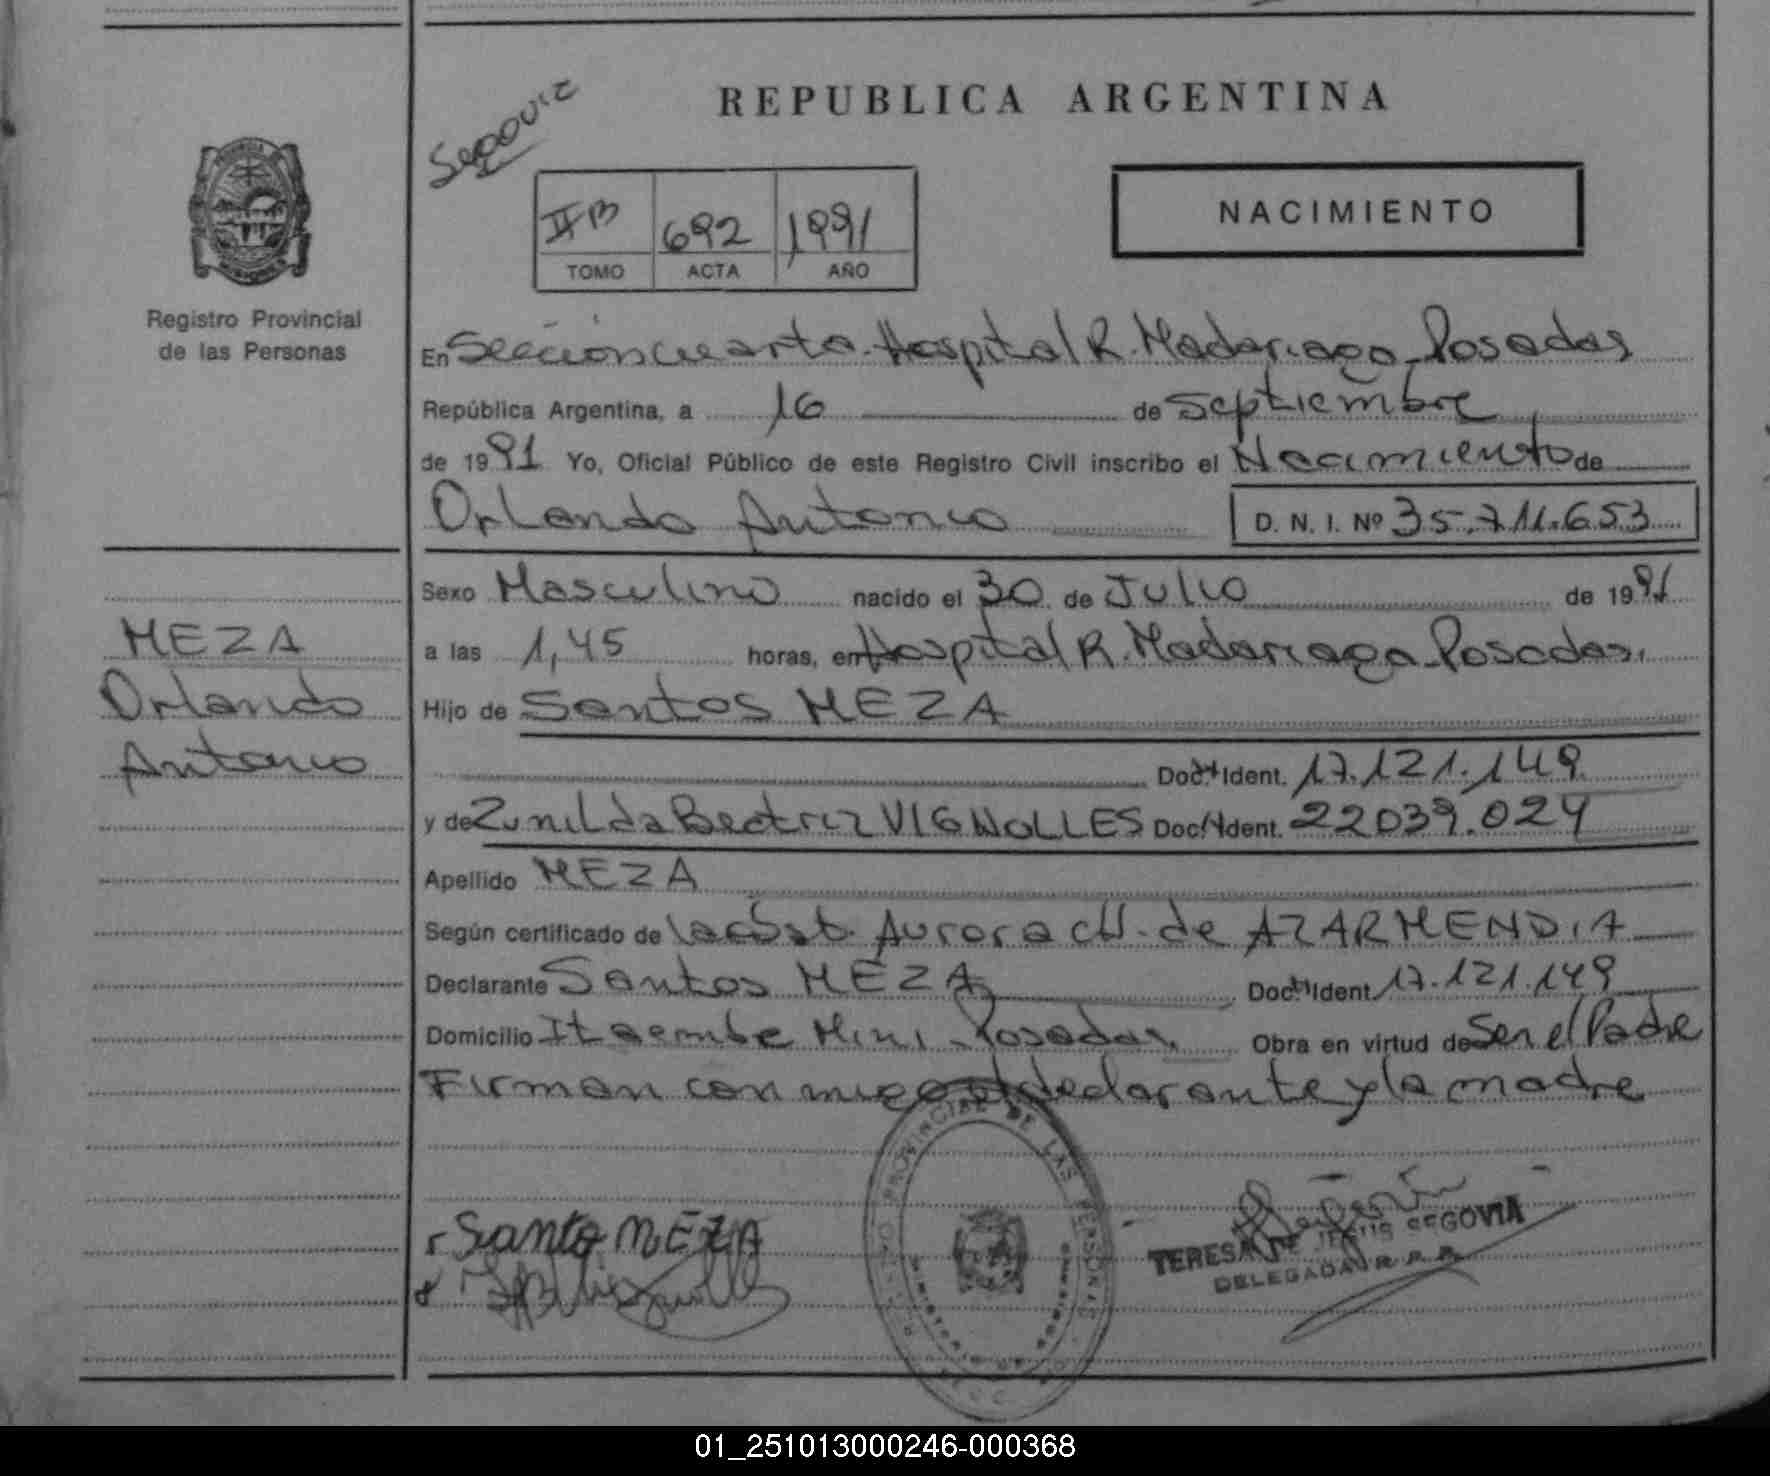 Segovia
REPUBLICA ARGENTINA
IIB 692 1991
TOMO ACTA AÑO
NACIMIENTO
Registro Provincial
de las Personas
En Sección cuarta. Hospital R. Madariaga - Posadas
República Argentina, a 16 de Septiembre
de 1991 Yo, Oficial Público de este Registro Civil inscribo el Nacimiento de
Orlando Antonio D. N. I. Nº 35.711.653
MEZA
Orlando
Antonio
Sexo Masculino nacido el 30 de Julio de 1991
a las 1,45 horas, en Hospital R. Madariaga - Posadas.
Hijo de Santos MEZA
Doc. Ident. 17.121.149
y de Zunilda Beatriz VIGNOLLES Doc. Ident. 22039.024
Apellido MEZA
Según certificado de la Obst. Aurora CH. de AZARMENDIA
Declarante Santos MEZA Doc. Ident 17.121.149
Domicilio Itaembe Mini - Posadas. Obra en virtud de Ser el Padre
Firman con migo el declarante y la madre
Santo MEZA
PROVINCIAL DE LAS PERSONAS
TERESA DE JESUS SEGOVIA
DELEGADA R. P. P.
01_251013000246-000368